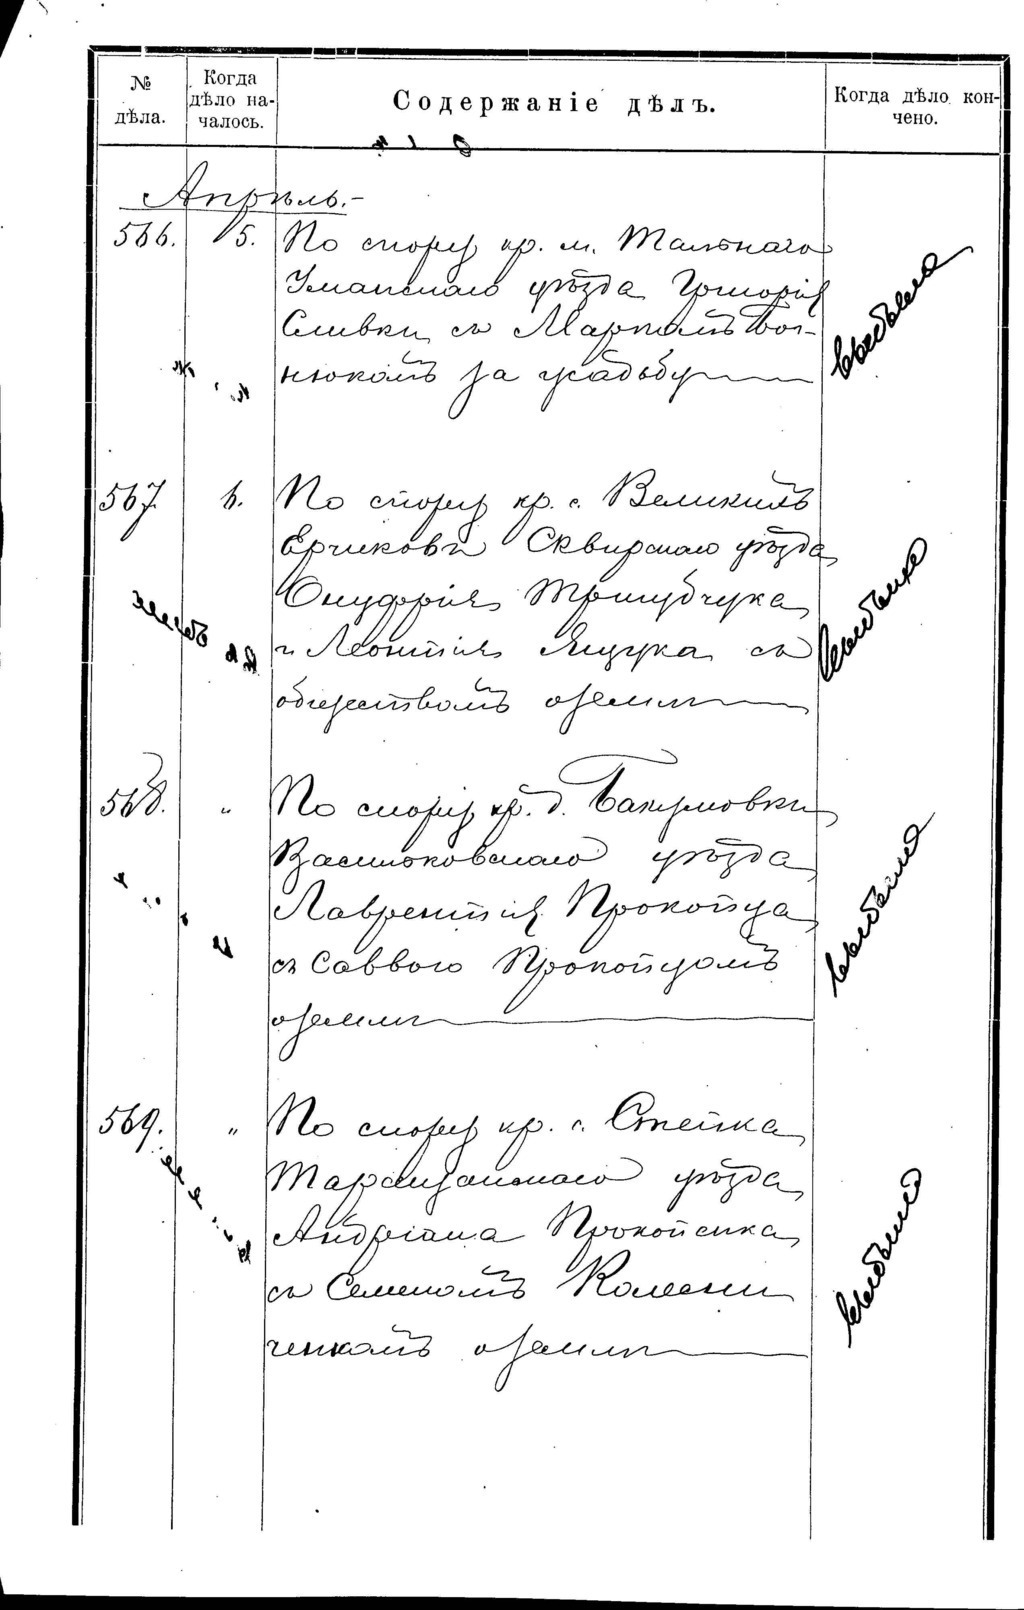 № дѣла.
Когда дѣло на-
чалось.
Содержаніе дѣлъ.
Когда дѣло кон-
чено.
Апрѣль.-
566. 5. По спору кр. м. Тального
Уманскаго уѣзда Григорія
Сливки съ Маркомъ Бот-
нюкомъ за усадьбу
567. 6. По спору кр. с. Великихъ
Ерчиковъ Сквирскаго уѣзда
Онуфрія Тришубчука
и Леонтія Яцука съ
обществомъ о землѣ
568. " По спору кр. д. Бакумовки
Васильковскаго уѣзда
Лаврентія Прокопца
съ Саввою Прокопцомъ
о землѣ
569. " По спору кр. с. Степка
Таращанскаго уѣзда
Андріана Прокопенка
съ Семеномъ Колесни
ченкомъ о землѣ